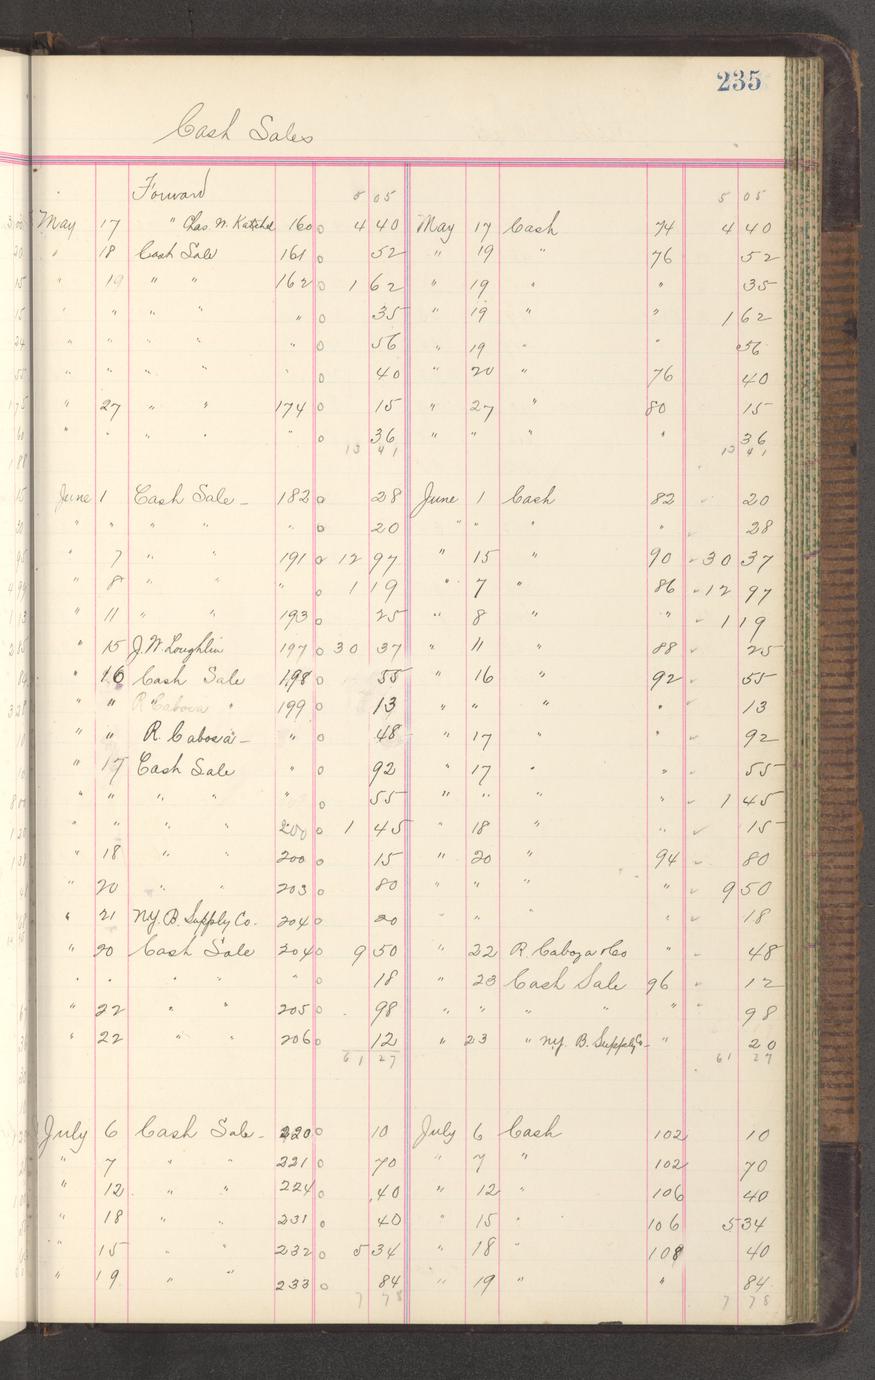 235
Cash Sales
Forward 5 05 5 05
May 17 " Chas. W. 160 o 4 40 May 17 Cash 74 4 40
" 18 Cash Sale 161 o 52 " 19 " 76 52
" 19 " " 162 o 1 62 " 19 " " 35
" " " " " o 35 " 19 " " 1 62
" " " " " o 56 " 19 " " 56
" " " " o 40 " 20 " 76 40
" 27 " " 174 o 15 " 27 " 80 15
" " " " " o 36 " " " " 36
13 41 13 41
June 1 Cash Sale - 182 o 28 June 1 Cash 82 20
" " " " " o 20 " " " " 28
" 7 " " 191 o 12 97 " 15 " 90 30 37
" 8 " " " o 1 19 " 7 " 86 12 97
" 11 " " 193 o 25 " 8 " " 1 19
" 15 J. W. Loughlin 197 o 30 37 " 11 " 88 25
" 16 Cash Sale 198 o 55 " 16 " 92 55
" " " " 199 o 13 " " " " 13
" " R. Caboza - " o 48 " 17 " " 92
" 17 Cash Sale " o 92 " 17 " " 55
" " " " " o 55 " " " " 1 45
" " " " 200 o 1 45 " 18 " " 15
" 18 " " 200 o 15 " 20 " 94 80
" 20 " " 203 o 80 " " " " 9 50
" 21 N.Y. B. Supply Co. 204 o 20 " " " " 18
" 20 Cash Sale 204 o 9 50 " 22 R. Caboza & Co " 48
" " " " " o 18 " 23 Cash Sale 96 12
" 22 " " 205 o 98 " " " " " 98
" 22 " " 206 o 12 " 23 " N.Y. B. Supply Co - " 20
61 27 61 27
July 6 Cash Sale - 220 o 10 July 6 Cash 102 10
" 7 " " 221 o 70 " 7 " 102 70
" 12 " " 224 o 40 " 12 " 106 40
" 18 " " 231 o 40 " 15 " 106 5 34
" 15 " " 232 o 5 34 " 18 " 108 40
" 19 " " 233 o 84 " 19 " " 84
7 78 7 78